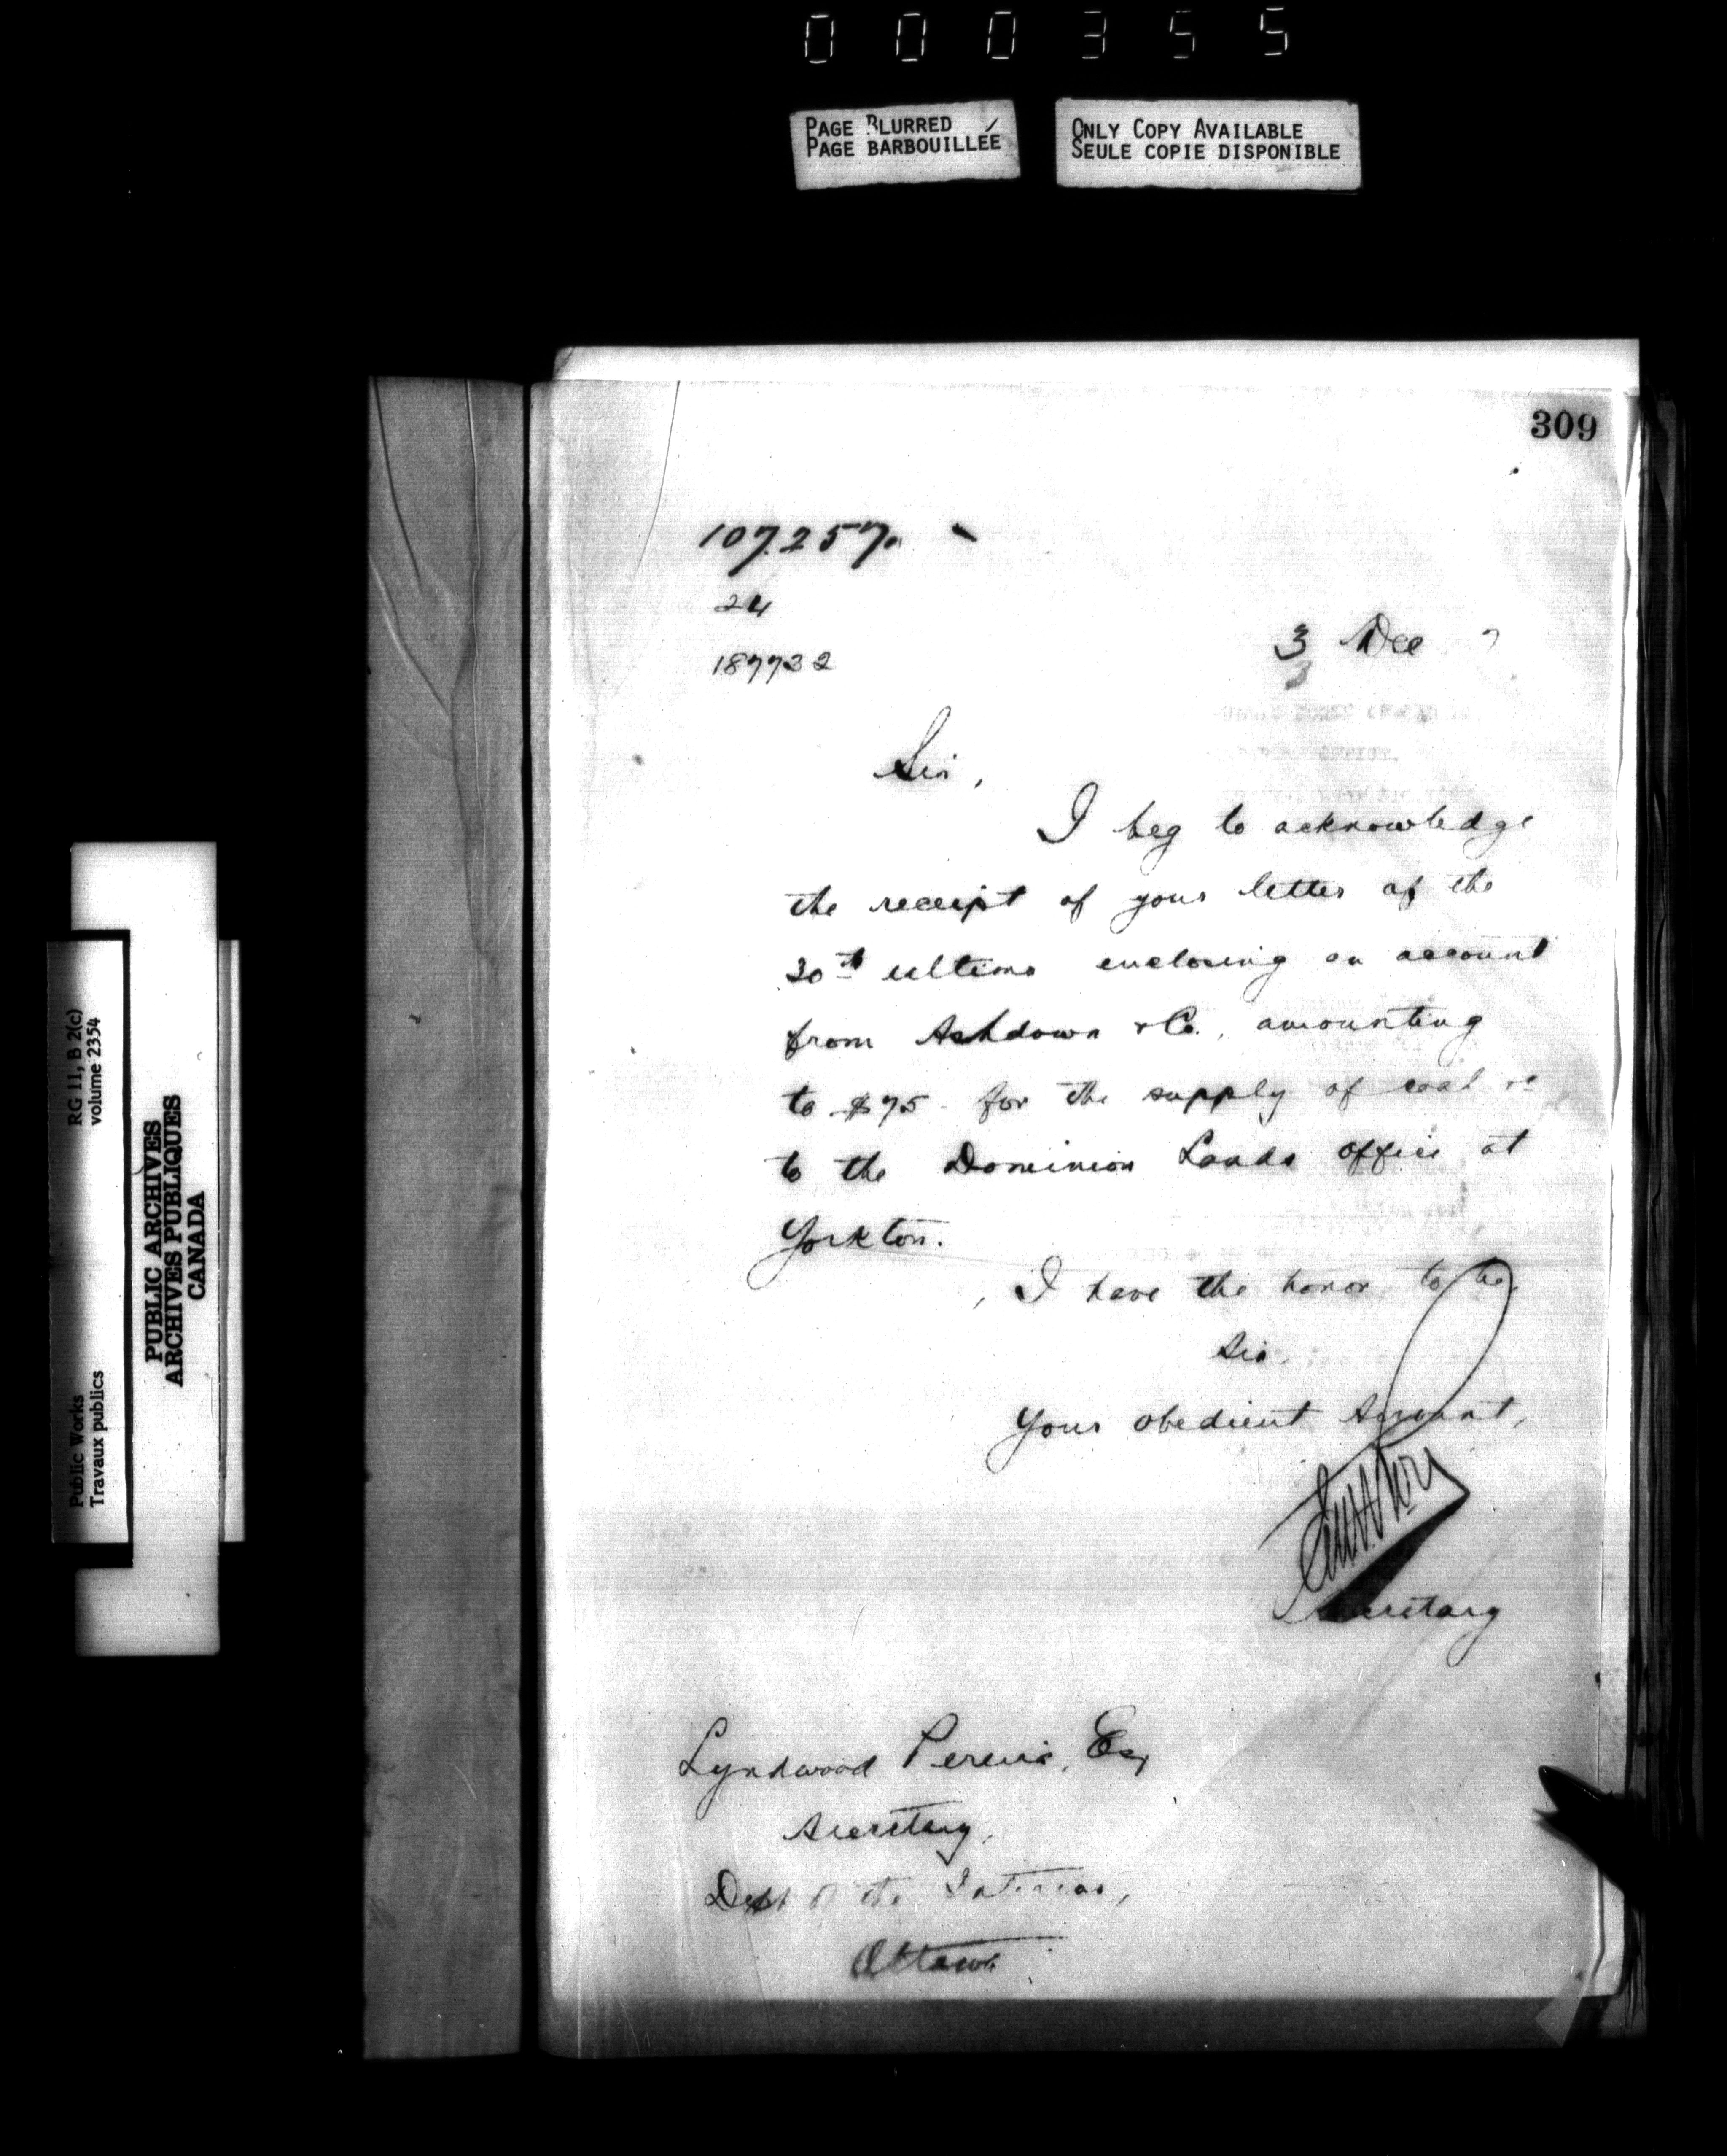 000355
PAGE BLURRED
PAGE BARBOUILLÉE
ONLY COPY AVAILABLE
SEULE COPIE DISPONIBLE
309
107.257.
24
187732
3 Dec 7
3
OFFICE.
Sir,
I beg to acknowledge
the receipt of your letter of the
30th ultimo enclosing an account
from Ashdown & Co., amounting
to $75 - for the supply of coal
to the Dominion Lands Office at
Yorkton.
I have the honor to be,
Sir,
Your obedient Servant,
Secretary
Lyndwood Pereira, Esq
Secretary,
Dept of the Interior,
Ottawa
RG 11, B 2(c)
volume 2354
Public Works
Travaux publics
PUBLIC ARCHIVES
ARCHIVES PUBLIQUES
CANADA